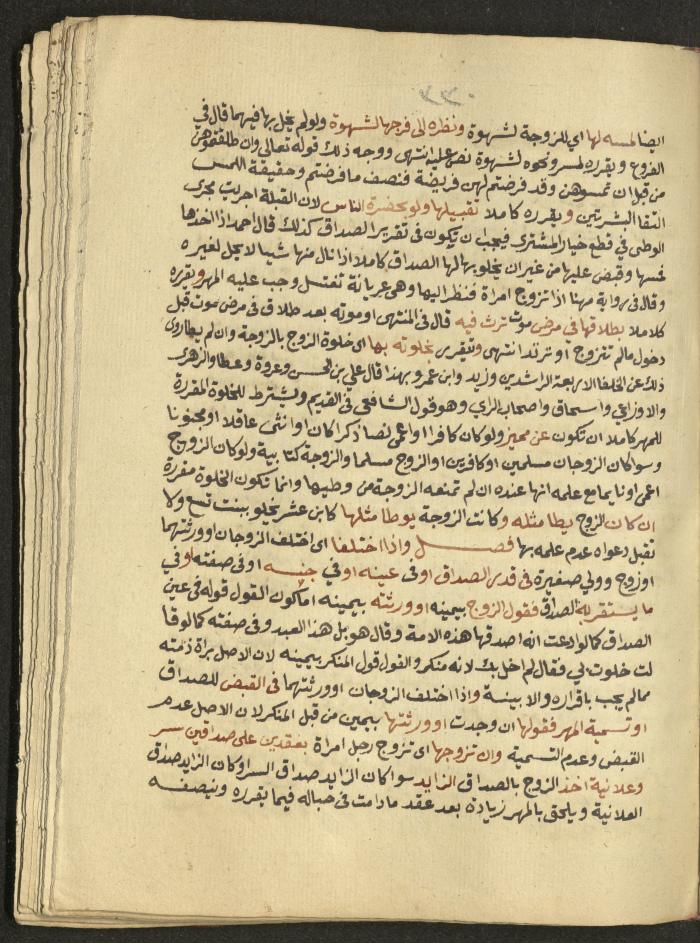 ايضا لمسه لها اي للزوجة لشهوة ونظره الى فرجها لشهوة ولو لم يخل بها فيهما قال في
الفروع ويقرره لمس ونحوه لشهوة نص عليه انتهى ووجه ذلك قوله تعالى وان طلقتموهن
من قبل ان تمسوهن وقد فرضتم لهن فريضة فنصف ما فرضتم وحقيقة اللمس
التقا البشرتين ويقرره كاملا تقبيلها ولو بحضرة الناس لان القبلة اجريت مجرى
الوطى في قطع خيار المشترى فيجب ان تكون في تقرير الصداق كذلك قال احمد اذا اخذها
فمسها وقبض عليها من غير ان يخلو بها لها الصداق كاملا اذا نال منها شيا لا يحل لغيره
وقال في رواية مهنا اذا تزوج امراة فنظر اليها وهي عريانة تغتسل وجب عليه المهر ويقرره
كلاملا بطلاقها في مرض موت ترث فيه قال في المنتهى او موته بعد طلاق في مرض موت قبل
دخول مالم تتزوج او ترتد انتهى وتتقرر بخلوته بها اى خلوة الزوج بالزوجة وان لم يطا روى
ذلك عن الخلفا الاربعة الراشدين وزيد وابن عمر وبهذا قال علي بن الحسن وعروة وعطا والزهرى
والاوزاعي واسحاق واصحاب الراي وهو قول الشافعى في القديم ويشترط للخلوة المقررة
للمهر كاملا ان تكون عن مميز ولو كان كافرا او اعمى نصا ذكرا كان او انثى عاقلا او مجنونا
وسوا كان الزوجان مسلمين او كافرين او الزوج مسلما والزوجة كتابية ولو كان الزوج
اعمى او نايما مع علمه انها عنده ان لم تمنعه الزوجة من وطيها وانما تكون الخلوة مقررة
ان كان الزوج يطا مثله وكانت الزوجة يوطا مثلها كابن عشر يخلو ببنت تسع ولا
تقبل دعواه عدم علمه بها فصل واذا اختلفا اى اختلف الزوجان او ورثتهما
او زوج وولي صغيرة في قدر الصداق او في عينه او في جنسه او في صفته او في
ما يستقر به الصداق فقول الزوج بيمينه او ورثته بيمينه اما كون القول قوله في عين
الصداق كما لو ادعت انه اصدقها هذه الامة وقال هو بل هذا العبد وفى صفته كما لو قا
لت خلوت بي فقال لم اخل بك لانه منكر والقول قول المنكر بيمينه لان الاصل براة ذمته
مما لم يجب باقراره والا بينة واذا اختلف الزوجان او ورثتهما في القبض للصداق
او تسمية المهر فقولها ان وجدت او ورثتها بيمين من قبل المنكر لان الاصل عدم
القبض وعدم التسمية وان تزوجها اى تزوج رجل امراة بعقدين على صداقين سر
وعلانية اخذ الزوج بالصداق الزايد سوا كان الزايد صداق السر او كان الزايد صداق
العلانية ويلحق بالمهر زيادة بعد عقد ما دامت في حباله فيما يقرره وينصفه